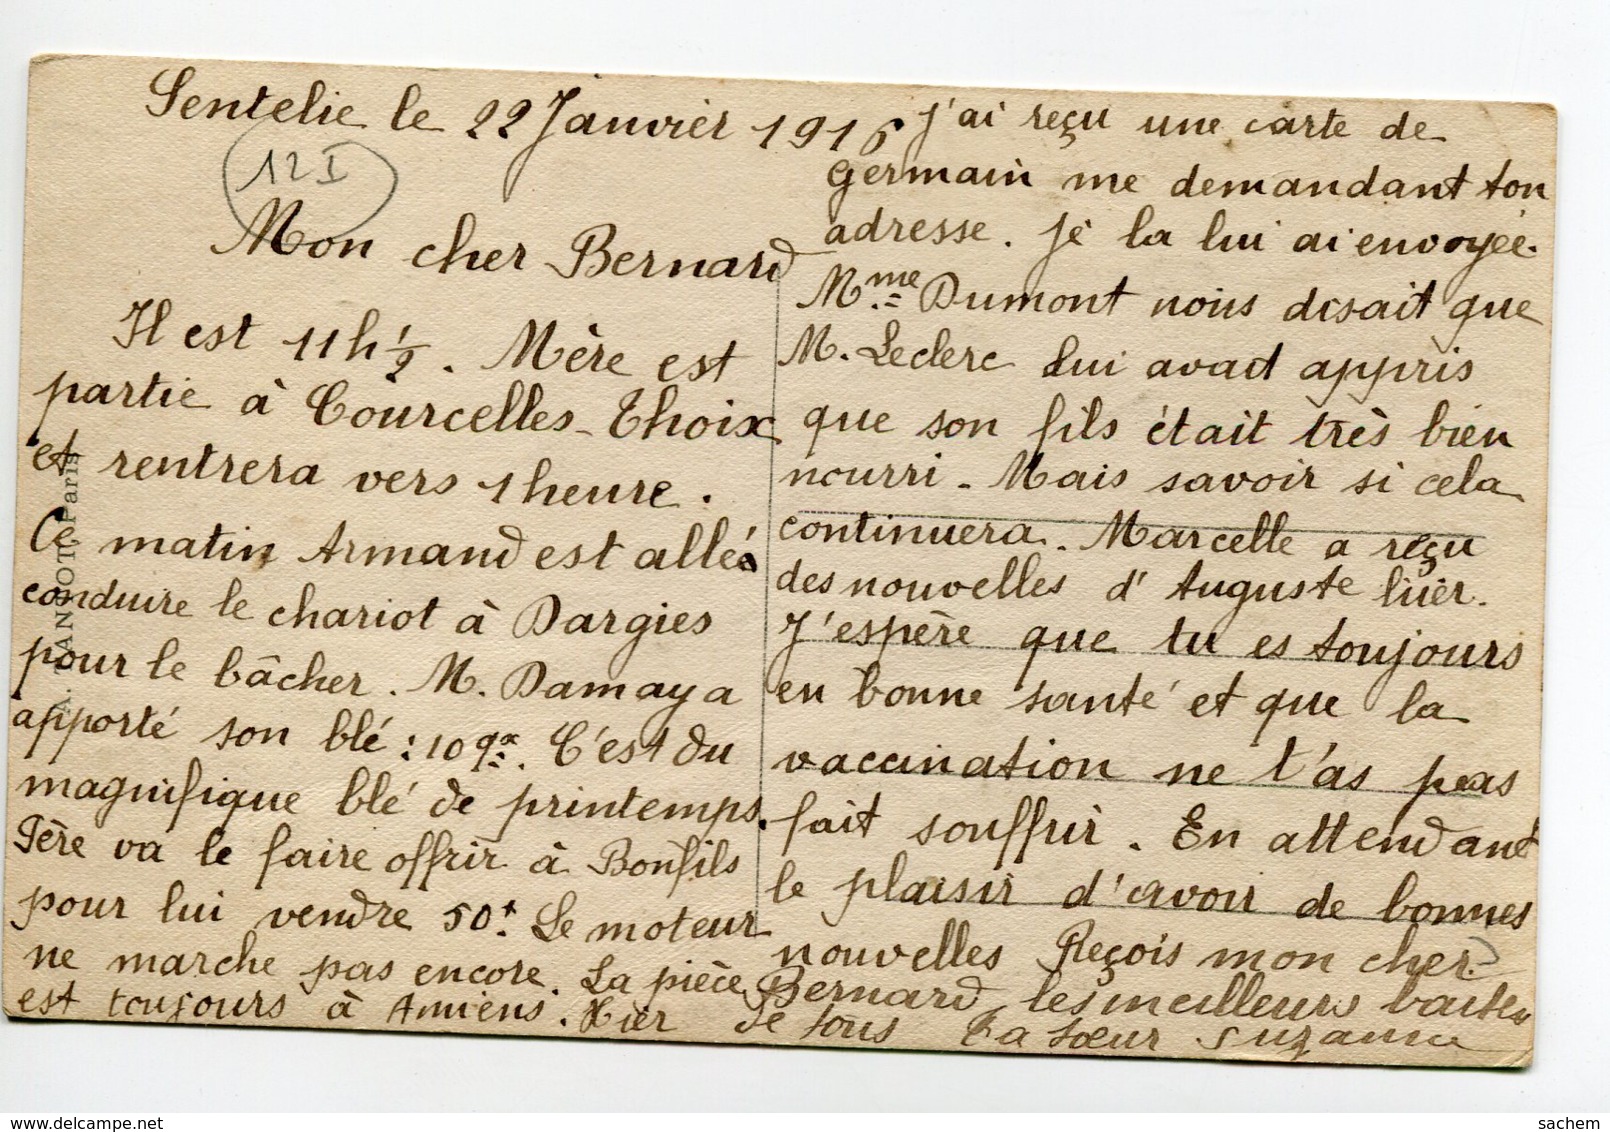 Sentelie le 22 Janvier 1916
12 I
Mon cher Bernard
Il est 11h ½. Mère est
partie à Courcelles-Thoix
et rentrera vers 1 heure.
Ce matin Armand est allé
conduire le chariot à Dargies
pour le bâcher. M. Damay a
apporté son blé : 10 qx. C'est du
magnifique blé de printemps.
Père va le faire offrir à Bonfils
pour lui vendre 50f. Le moteur
ne marche pas encore. La pièce
est toujours à Amiens. Hier
j'ai reçu une carte de
Germain me demandant ton
adresse. Je la lui ai envoyée.
Mme Dumont nous disait que
M. Leclerc lui avait appris
que son fils était très bien
nourri - Mais savoir si cela
continuera. Marcelle a reçu
des nouvelles d'Auguste hier.
J'espère que tu es toujours
en bonne santé et que la
vaccination ne t'as pas
fait souffrir. En attendant
le plaisir d'avoir de bonnes
nouvelles Reçois mon cher
Bernard, les meilleurs baisers
de tous Ta sœur Suzanne
A. PANJOT, Paris
sachem